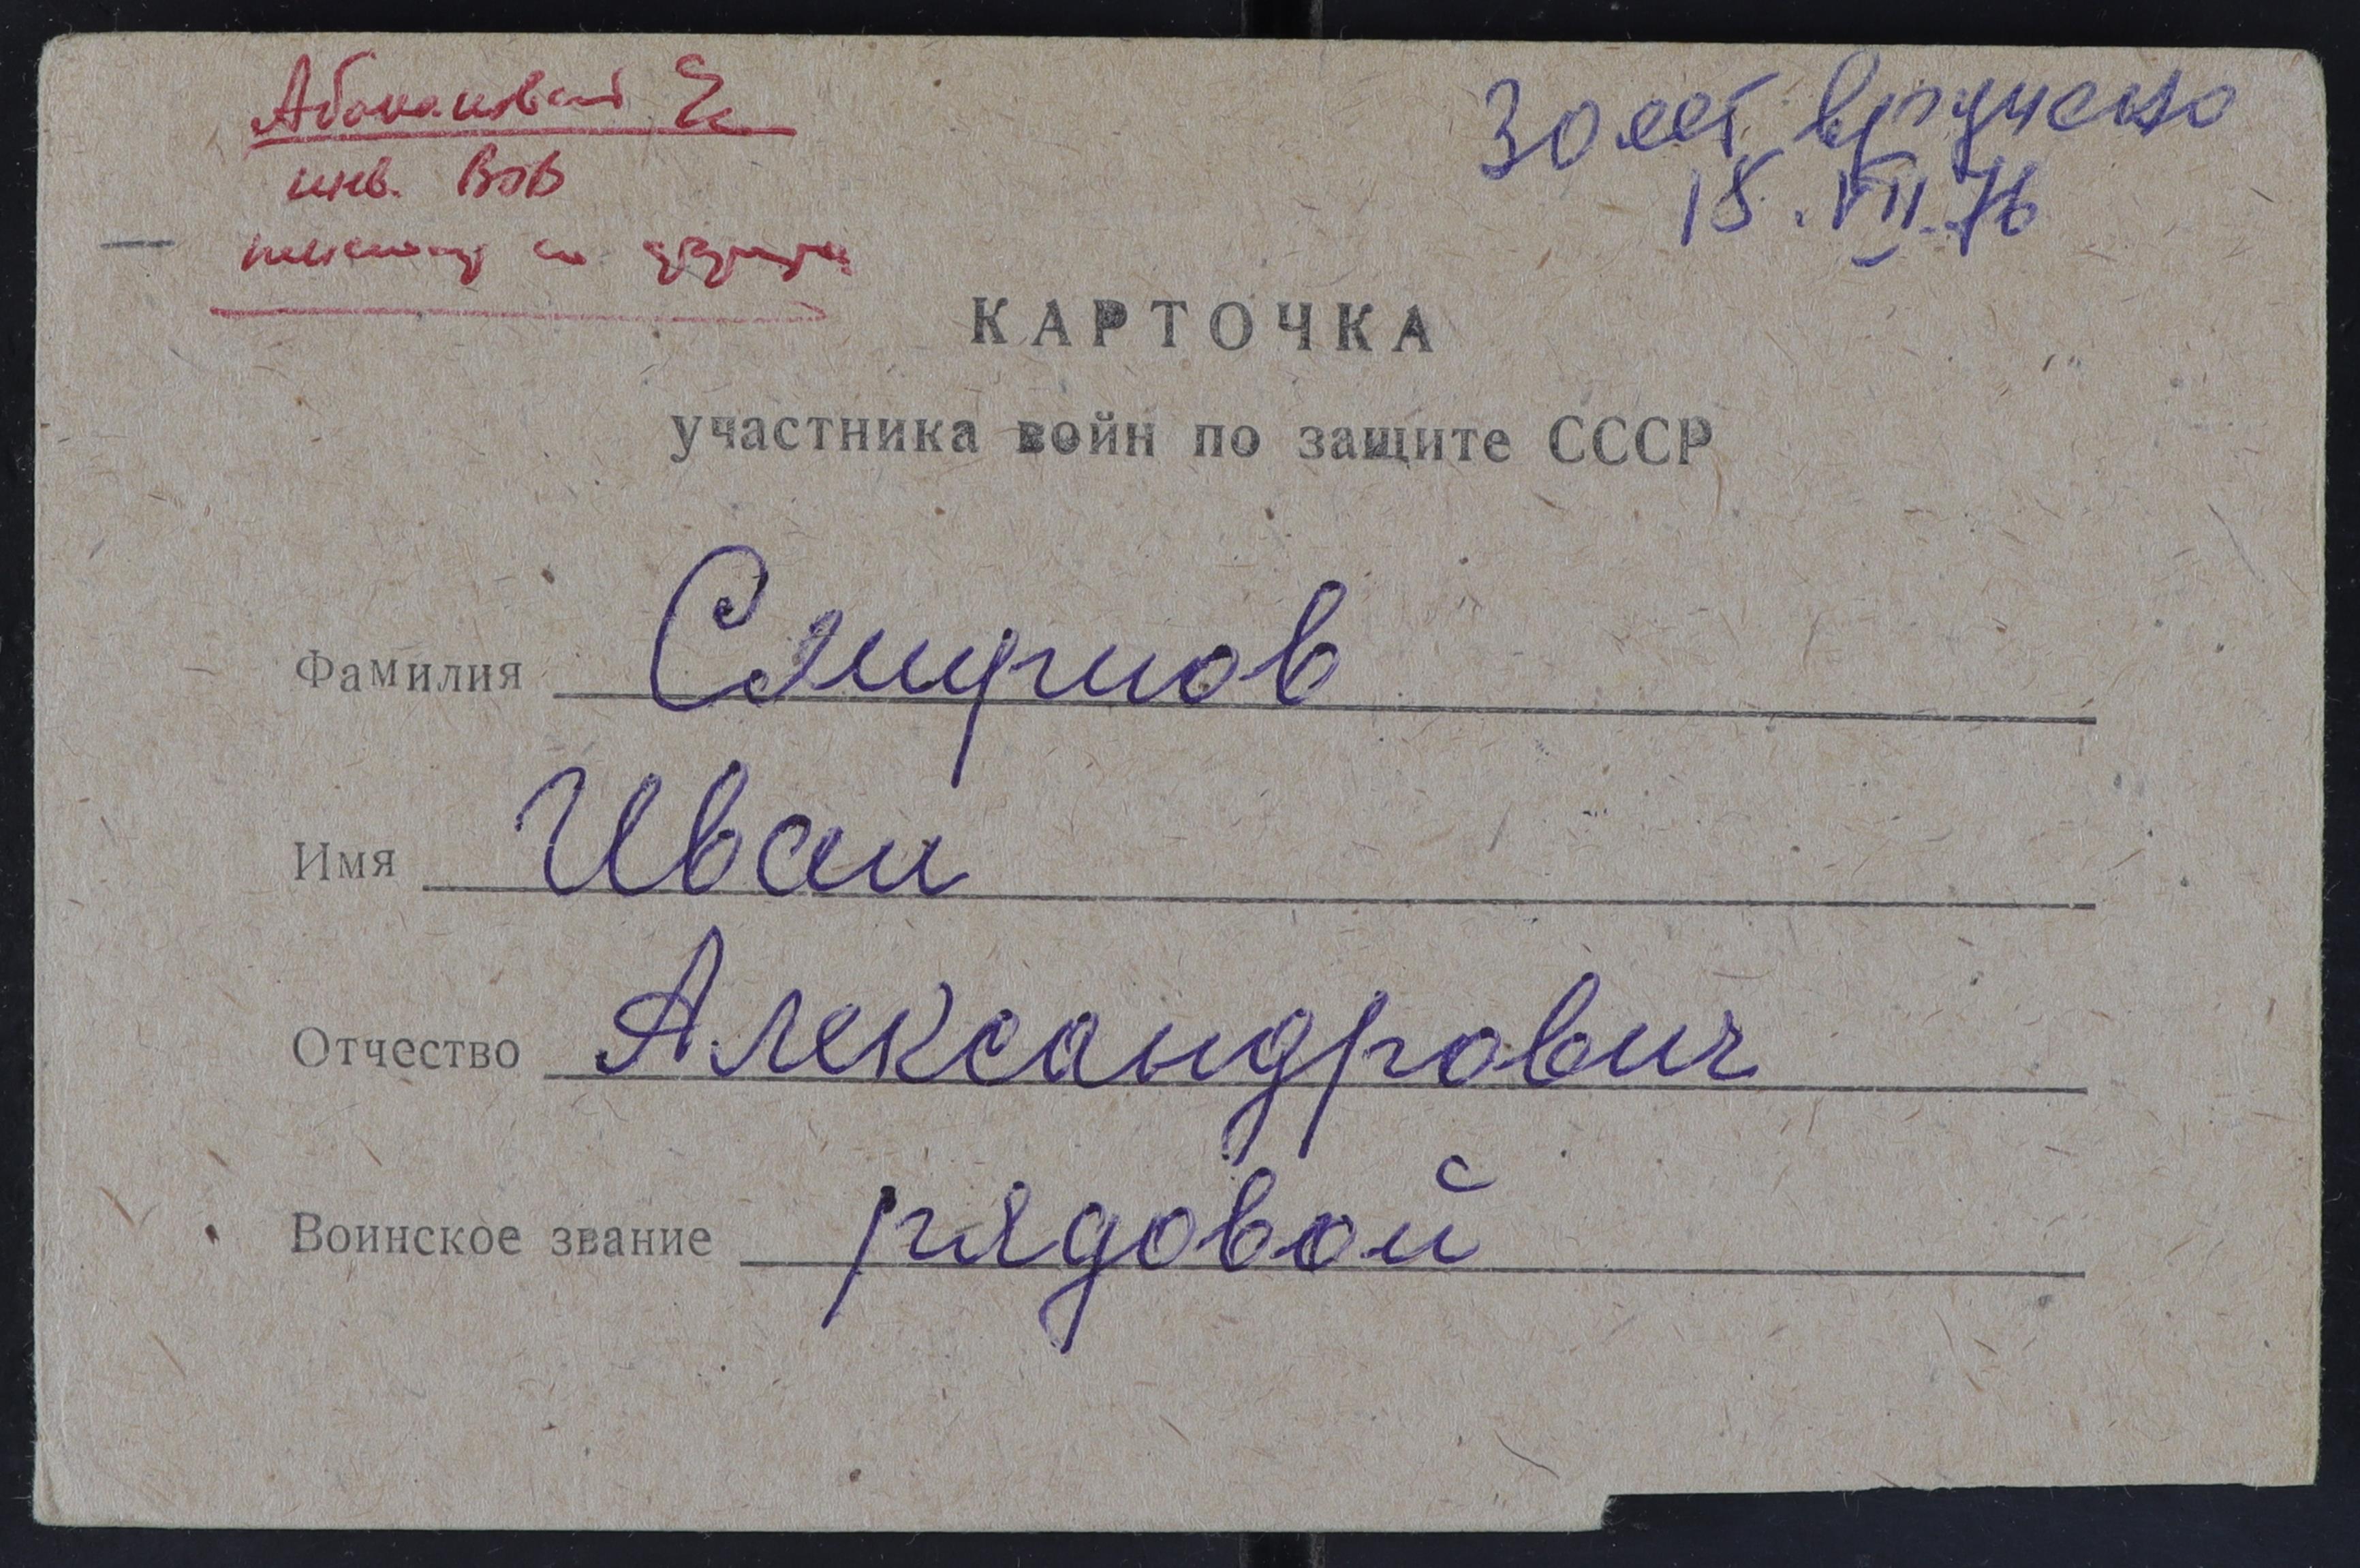 инв. ВОВ
30 лет вручено
18.VIII.76
КАРТОЧКА
участника войн по защите СССР
Фамилия Смирнов
Имя Иван
Отчество Александрович
Воинское звание рядовой